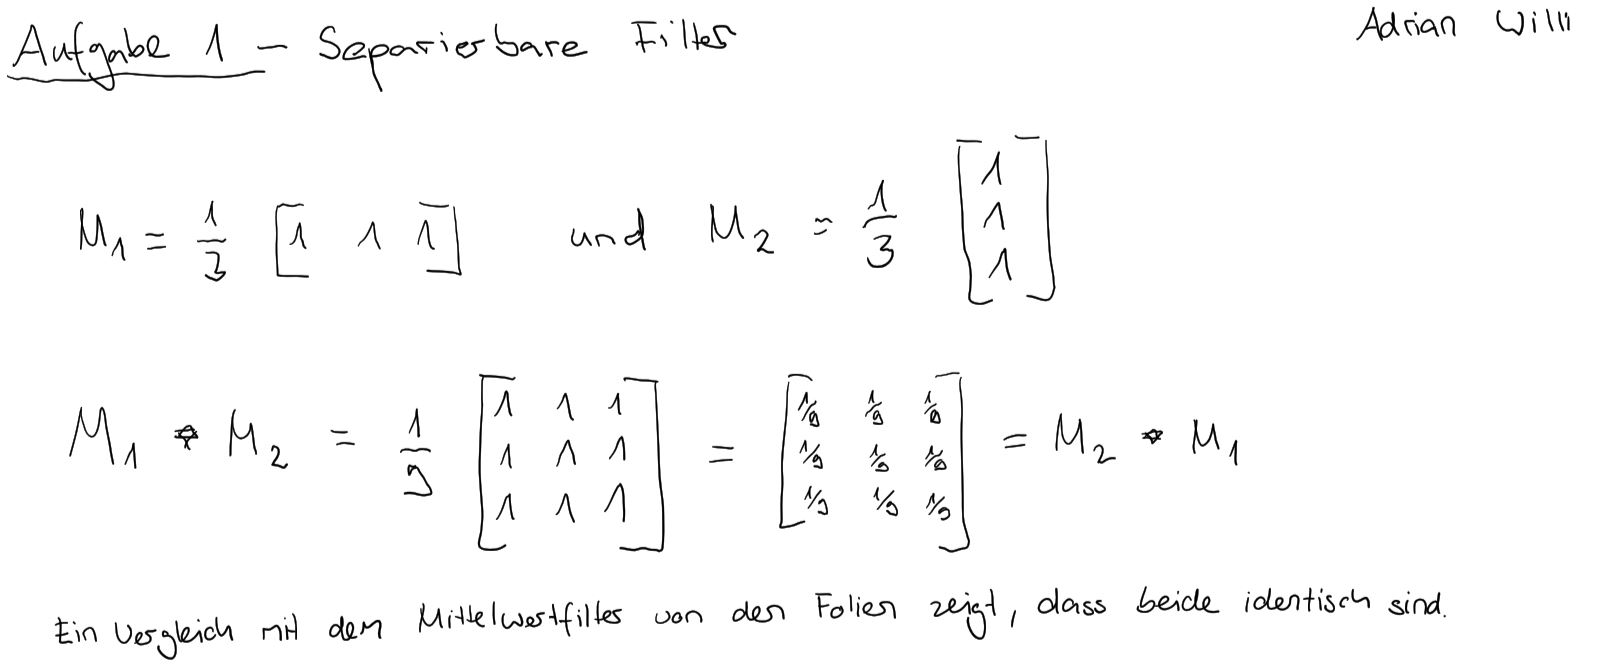 Aufgabe 1 - Separierbare Filter
Adrian Willi
M₁ = 1/3 [1 1 1] und M₂ = 1/3 [1 1 1]
M₁ * M₂ = 1/9 [1 1 1 1 1 1 1 1 1] = [1/9 1/9 1/9 1/9 1/9 1/9 1/9 1/9 1/9] = M₂ * M₁
Ein Vergleich mit dem Mittelwertfilter von den Folien zeigt, dass beide identisch sind.